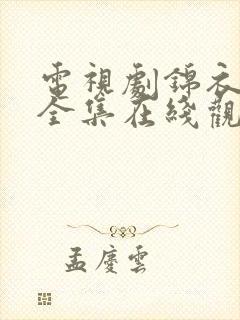 電視劇錦衣
全集在綫觀
孟慶雲